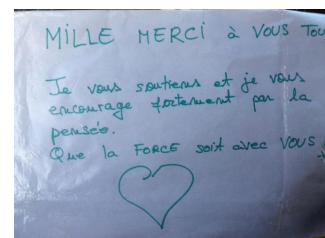 MILLE MERCI à VOUS TOU
Je vous soutiens et je vous
encourage fortement par la
pensée.
Que la FORCE soit avec VOUS